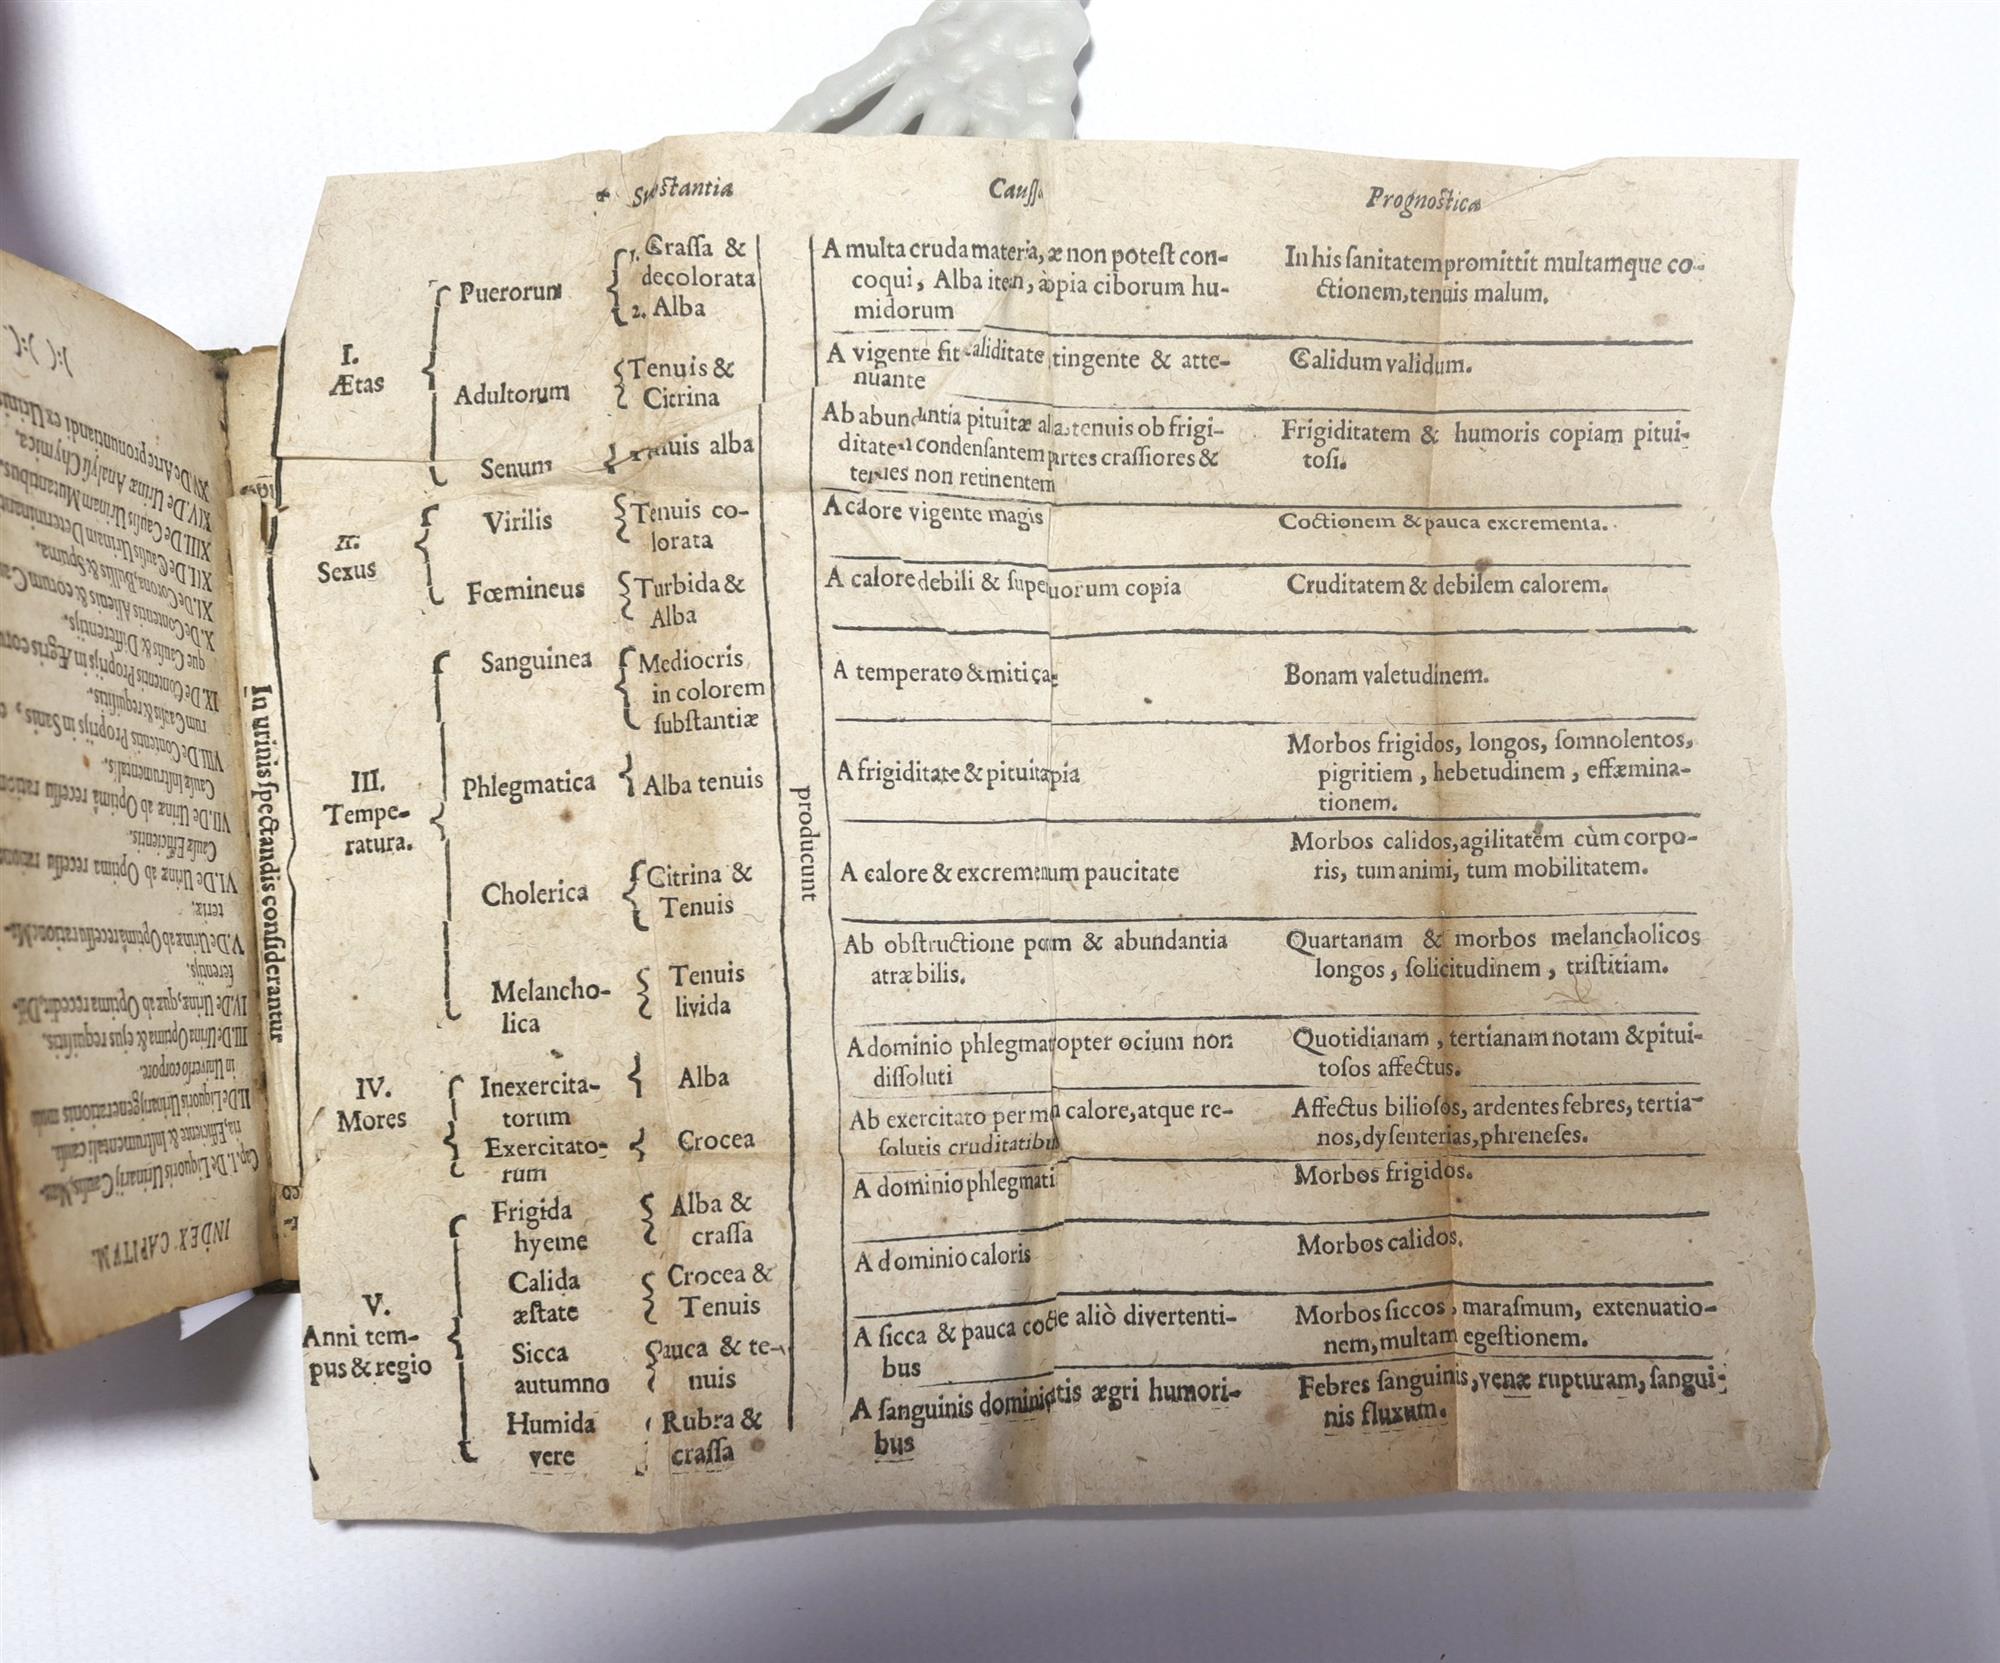 Substantia
Prognostica
In urinis spectandis considerantur
I.
Ætas
Puerorum
1. Crassa &
decolorata
2. Alba
A multa cruda materia, æ non potest con-
coqui, Alba item, à opia ciborum hu-
midorum
In his sanitatem promittit multamque co-
ctionem, tenuis malum.
Adultorum
Tenuis &
Citrina
A vigente fit aliditate tingente & atte-
nuante
Calidum validum.
Senum
Tenuis alba
Ab abundantia pituitæ al a, tenuis ob frigi-
ditatem condensantem partes crassiores &
tenues non retinentem
Frigiditatem & humoris copiam pitui-
tosi.
II.
Sexus
Virilis
Tenuis co-
lorata
A calore vigente magis
Coctionem & pauca excrementa.
Fœmineus
Turbida &
Alba
A calore debili & supe uorum copia
Cruditatem & debilem calorem.
III.
Tempe-
ratura.
Sanguinea
Mediocris
in colorem
substantiæ
A temperato & miti ca-
Bonam valetudinem.
Phlegmatica
Alba tenuis
A frigiditate & pituita pia
Morbos frigidos, longos, somnolentos,
pigritiem, hebetudinem, effæmina-
tionem.
Cholerica
Citrina &
Tenuis
A calore & excremen um paucitate
Morbos calidos, agilitatem cùm corpo-
ris, tum animi, tum mobilitatem.
Melancho-
lica
Tenuis
livida
Ab obstructione po m & abundantia
atræ bilis.
Quartanam & morbos melancholicos
longos, solicitudinem, tristitiam.
producunt
IV.
Mores
Inexercita-
torum
Alba
A dominio phlegmat opter ocium non
dissoluti
Quotidianam, tertianam notam & pitui-
tosos affectus.
Exercitato-
rum
Crocea
Ab exercitato per m calore, atque re-
solutis cruditatibu
Affectus biliosos, ardentes febres, tertia-
nos, dysenterias, phreneses.
V.
Anni tem-
pus & regio
Frigida
hyeme
Alba &
crassa
A dominio phlegmati
Morbos frigidos.
Calida
æstate
Crocea &
Tenuis
A dominio caloris
Morbos calidos.
Sicca
autumno
Pauca & te-
nuis
A sicca & pauca co e aliò divertenti-
bus
Morbos siccos, marasmum, extenuatio-
nem, multam egestionem.
Humida
vere
Rubra &
crassa
A sanguinis domini tis ægri humori-
bus
Febres sanguinis, venæ rupturam, sangui-
nis fluxum.
INDEX CAPITVM.
Cap. I. De Liquoris Urinarij Causis, Mate-
ria, Efficiente & Instrumentali causa.
II. De Liquoris Urinarij generationis modo
in Universo corpore.
III. De Urina Optima & ejus requisitis.
IV. De Urinæ, quæ ab Optima recedit, Dif-
ferentijs.
V. De Urinæ ab Optimâ recessu ratione Ma-
teriæ.
VI. De Urinæ ab Optima recessu ratione
Causæ Efficientis.
VII. De Urinæ ab Optimâ recessu ratione
Causæ Instrumentalis.
VIII. De Contentis Proprijs in Sanis,
rum Causis & requisitis.
IX. De Contentis Proprijs in Ægris
que Causis & Differentijs.
X. De Contentis Alienis & eorum
XI. De Corona, Bullis & Spuma.
XII. De Causis Urinam Determinant
XIII. De Causis Urinam Mutantibus.
XIV. De Urinæ Analysi Chymica.
XV. De Arte pronuntiandi ex Urinis
):( ):(